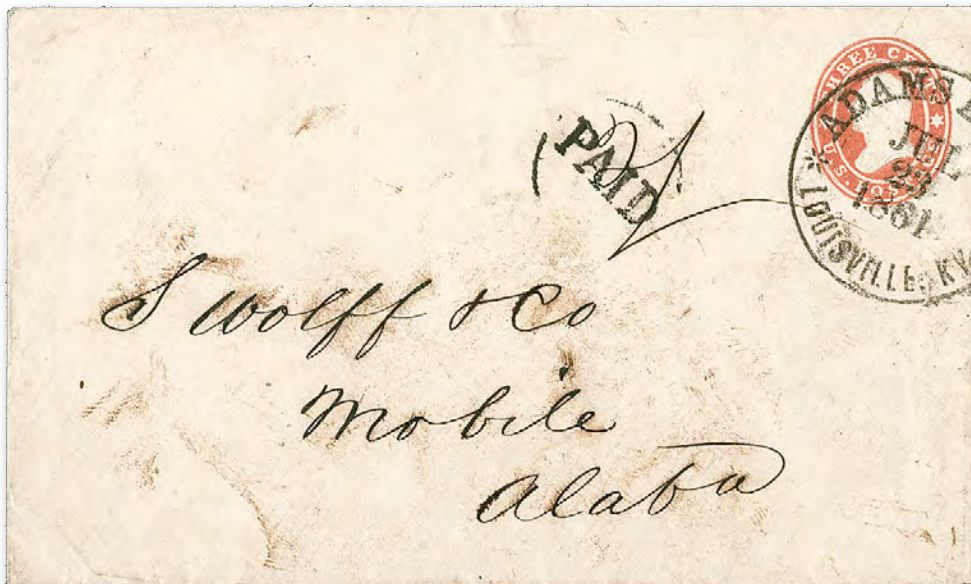 THREE CENTS
U.S. POSTAGE
ADAMS
1861
* LOUISVILLE, KY
PAID
S Wolff & Co
Mobile
Alaba